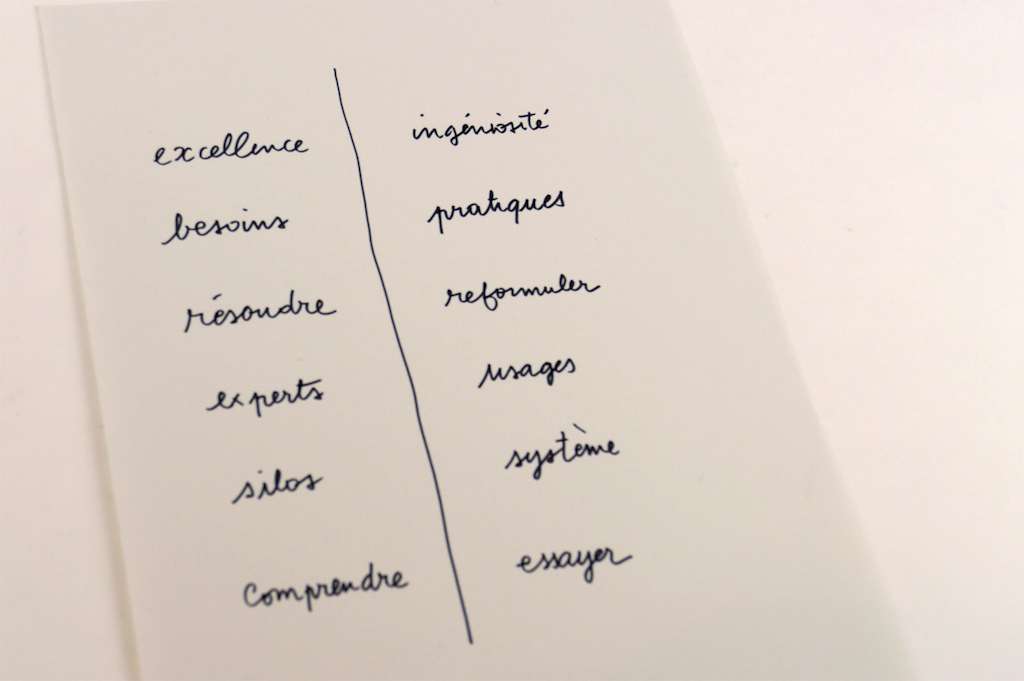 excellence ingéniosité
besoins pratiques
résoudre reformuler
experts usages
silos système
comprendre essayer